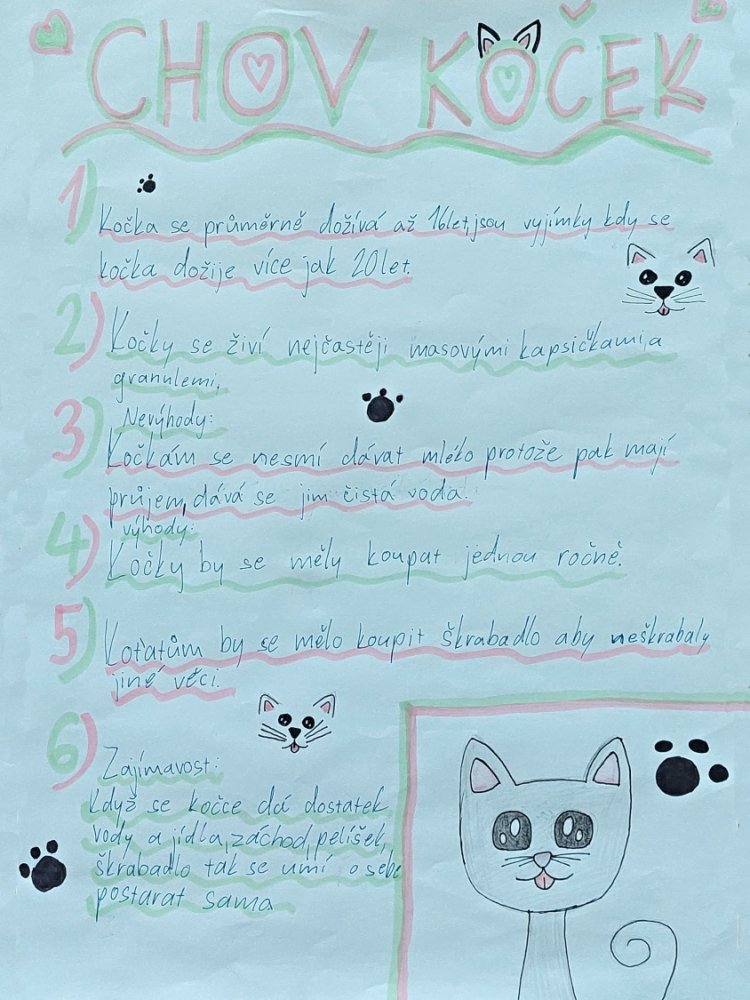 CHOV KOČEK
1)
Kočka se průměrně dožívá až 16let,jsou vyjímky kdy se
kočka dožije více jak 20let.
2)
Kočky se živí nejčastěji masovými kapsičkami,a
granulemi,
3)
Nevýhody:
Kočkám se nesmí dávat mléko protože pak mají
průjem,dává se jim čistá voda.
výhody:
4)
Kočky by se měly koupat jednou ročně.
5)
Koťatům by se mělo koupit škrabadlo aby neškrabaly
jiné věci.
6)
Zajímavost:
Když se kočce dá dostatek
vody a jídla,záchod,pelíšek,
škrabadlo tak se umí o sebe
postarat sama